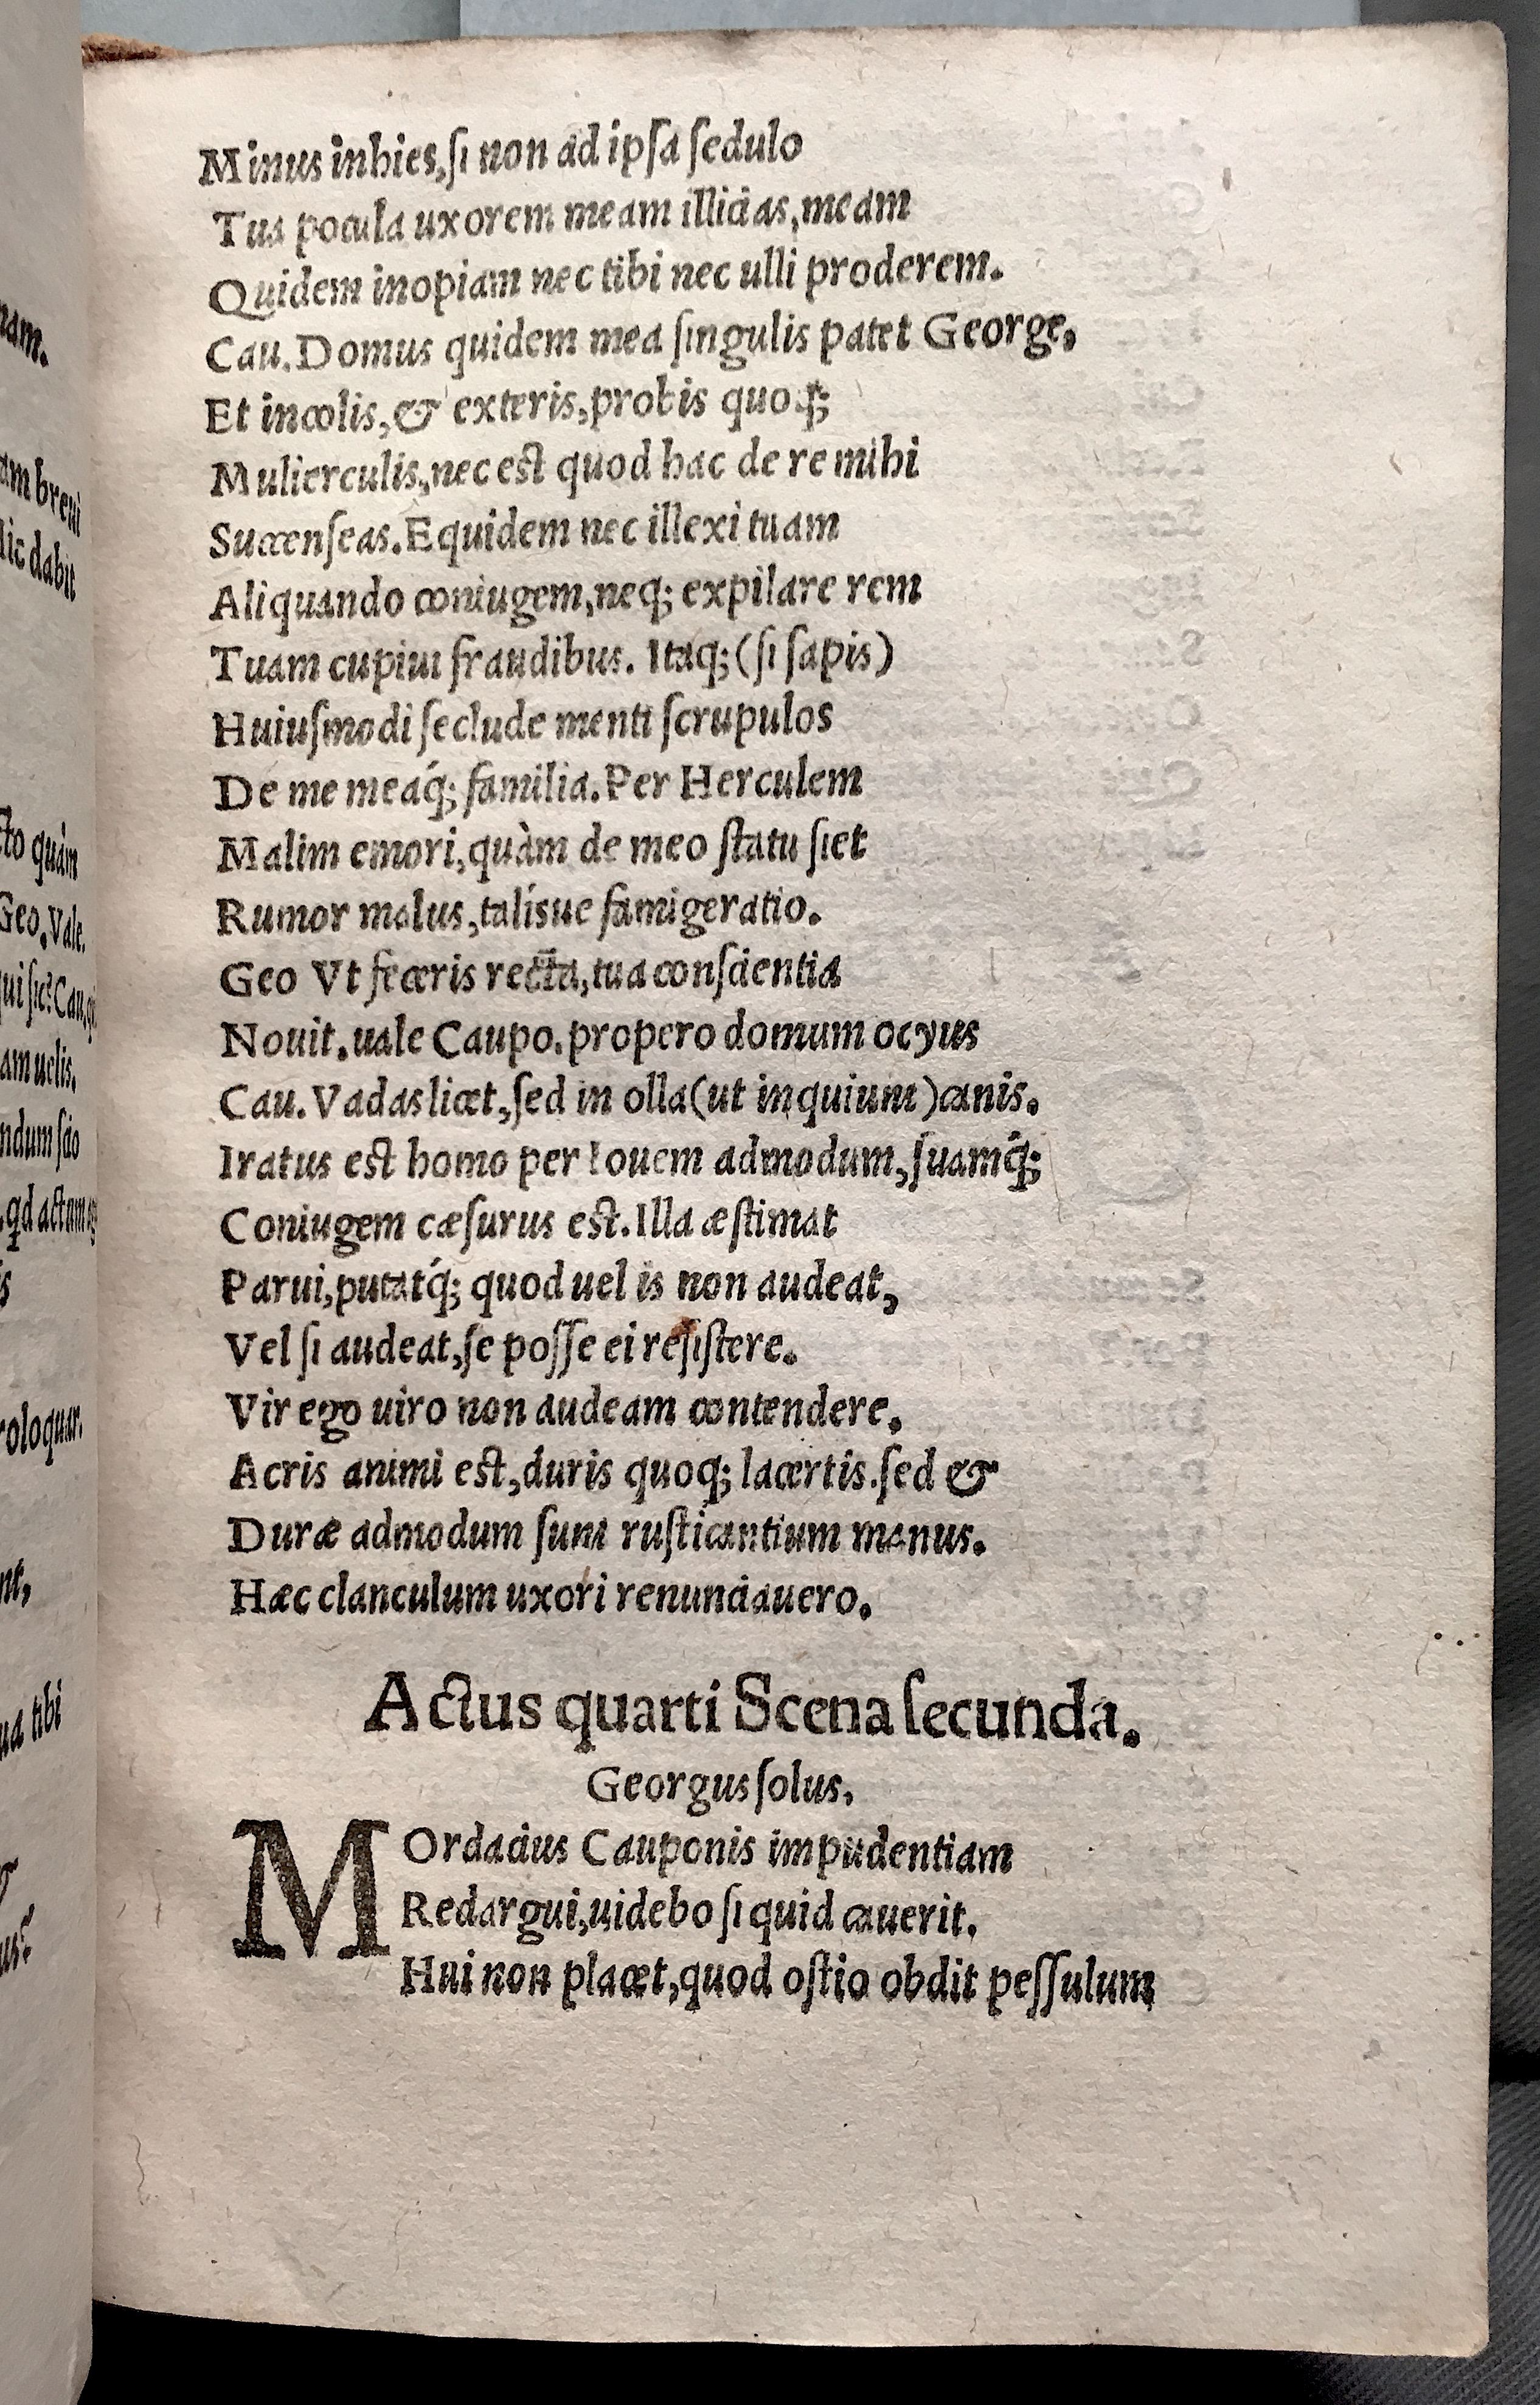 Minus inhies, ſi non ad ipſa ſedulo
Tua pocula uxorem meam illicias, meam
Quidem inopiam nec tibi nec ulli proderem.
Cau. Domus quidem mea ſingulis patet George,
Et incolis, & exteris, probis quoq;
Mulierculis, nec est quod hac de re mihi
Succenſeas. Equidem nec illexi tuam
Aliquando coniugem, neq; expilare rem
Tuam cupiui fraudibus. Itaq; (ſi ſapis)
Huiuſmodi ſeclude menti ſcrupulos
De me meaq́; familia. Per Herculem
Malim emori, quàm de meo ſtatu ſiet
Rumor malus, talísue famigeratio.
Geo Vt feceris rectà, tua conſcientia
Nouit. uale Caupo. propero domum ocyus
Cau. Vadas licet, ſed in olla (ut inquiunt) canis.
Iratus est homo per Iouem admodum, ſuamq́;
Coniugem cæſurus est. Illa æſtimat
Parui, putatq́; quod uel is non audeat,
Vel ſi audeat, ſe poſſe ei reſiſtere.
Vir ego uiro non audeam contendere,
Acris animi est, duris quoq; lacertis. ſed &
Duræ admodum ſunt ruſticantium manus.
Hæc clanculum uxori renunciauero.
Actus quarti Scena ſecunda.
Georgus ſolus,
MOrdacius Cauponis impudentiam
Redargui, uidebo ſi quid cauerit.
Hui non placet, quod oſtio obdit peſſulum
nam.
am breui
lic dabit
cto quàm
Geo. Vale.
qui ſic? Cau.
am uelis.
ndum ſcio
qd actum
is
roloquar.
nt,
ua tibi
us?